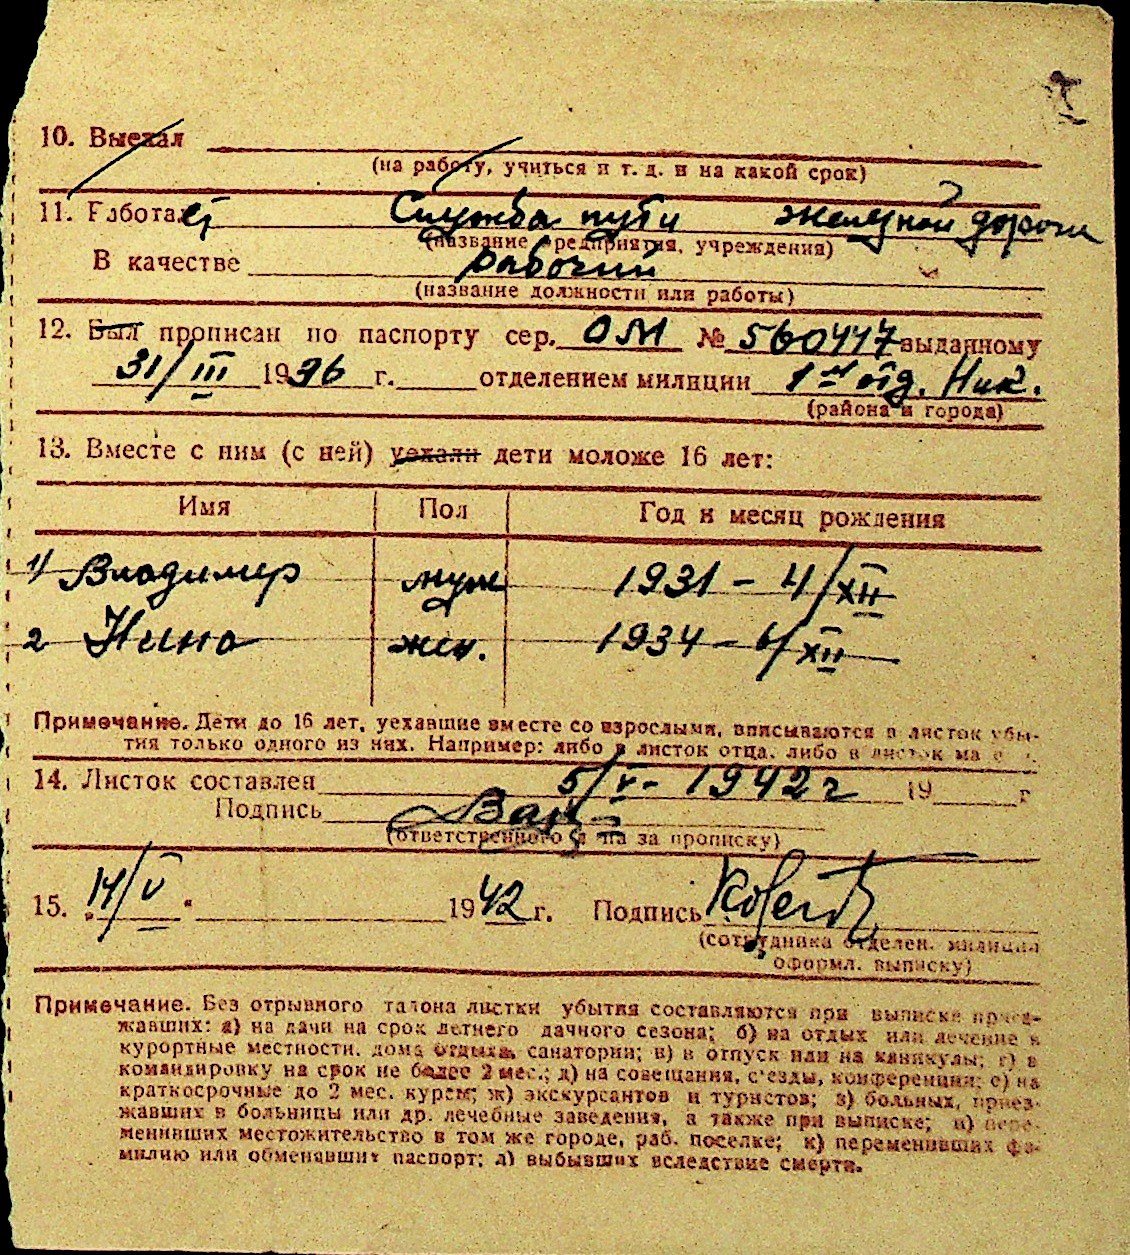 10. Выехал
(на работу, учиться и т. д. и на какой срок)
11. Работает Служба пути железной дороги
(название предприятия, учреждения)
В качестве рабочий
(название должности или работы)
12. Был прописан по паспорту сер. ОМ № 560447 выданному
31/III 1936 г. отделением милиции 1м отд. Ник.
(района и города)
13. Вместе с ним (с ней) уехали дети моложе 16 лет:
Имя Пол Год и месяц рождения
1) Владимир муж 1931 - 4/XII
2 Нина жен. 1934 - 6/XII
Примечание. Дети до 16 лет, уехавшие вместе со взрослыми, вписываются в листок убы-
тия только одного из них. Например: либо в листок отца, либо в листок ма
14. Листок составлен 5/V - 1942 г 19 г
Подпись
(ответственного за прописку)
15. „14/V" 1942 г. Подпись
(сотрудника отделен. милиции
оформл. выписку)
Примечание. Без отрывного талона листки убытия составляются при выписке приез-
жавших: а) на дачи на срок летнего дачного сезона; б) на отдых или лечение в
курортные местности, дома отдыха, санатории; в) в отпуск или на каникулы; г) в
командировку на срок не более 2 мес.; д) на совещания, с'езды, конференции; е) на
краткосрочные до 2 мес. курсы; ж) экскурсантов и туристов; з) больных, приез-
жавших в больницы или др. лечебные заведения, а также при выписке; и) пере-
менивших местожительство в том же городе, раб. поселке; к) переменивших фа-
милию или обменавших паспорт; л) выбывших вследствие смерти.